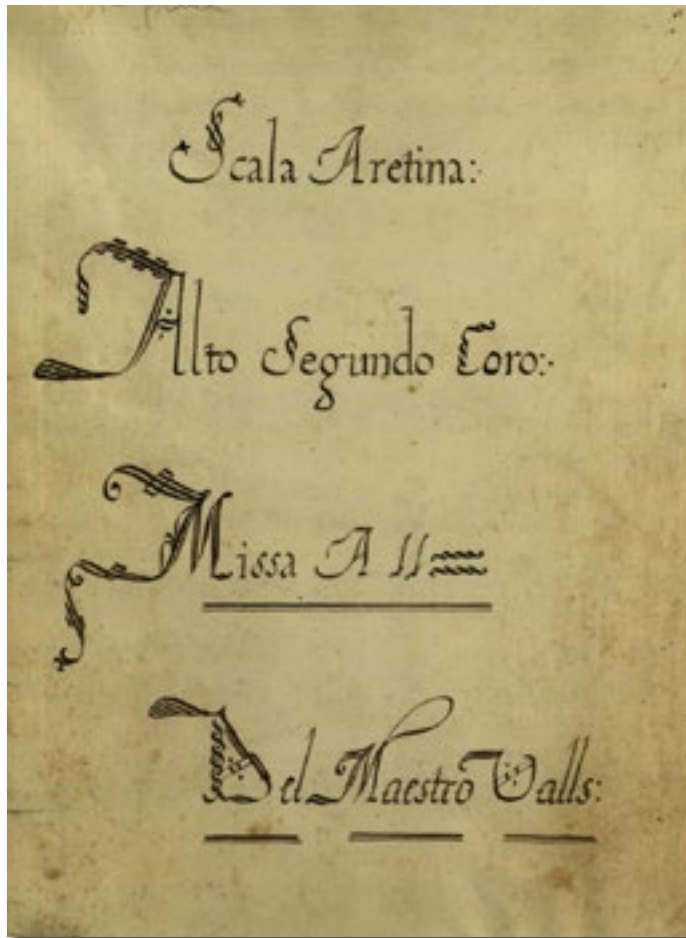 Scala Aretina:
Alto Segundo Coro:
Missa A 11
Del Maestro Valls: